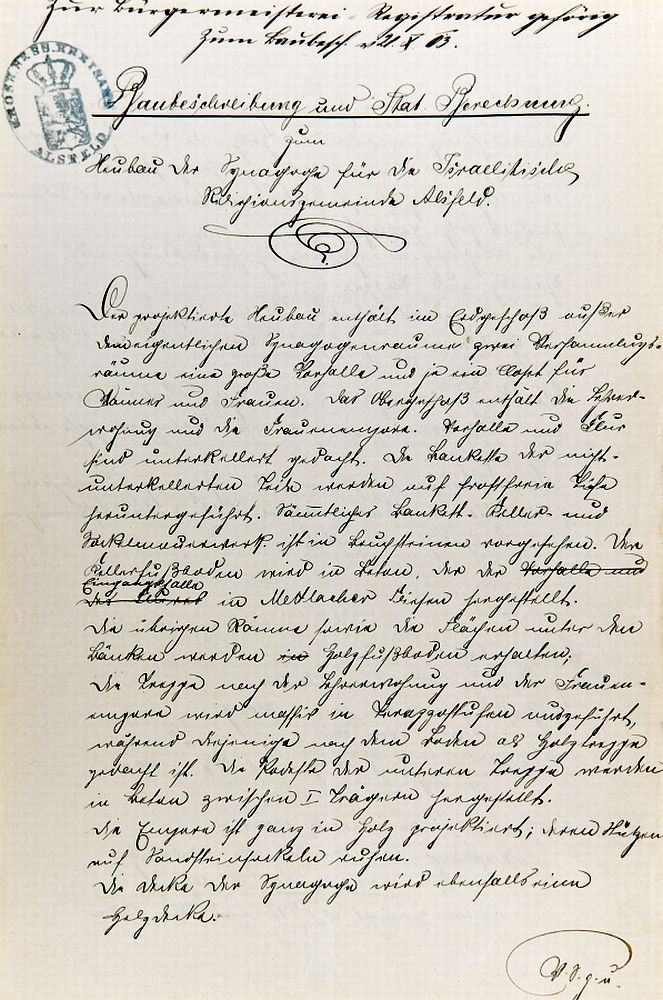 Zur Bürgermeisterei-Registratur gehörig
zum Baubesch. v. 21 X 03.
GROSH. HESS. KREISAMT
ALSFELD
Baubeschreibung und Stat. Berechnung.
zum
Neubau der Synagoge für die Israelitische
Religionsgemeinde Alsfeld.
Der projektierte Neubau enthält im Erdgeschoß außer
dem eigentlichen Synagogenraume zwei Versammlungs-
räume eine große Vorhalle und je ein Closet für
Männer und Frauen. Das Obergeschoß enthält die Lehrer-
wohnung und die Frauenempore. Vorhalle und Flur
sind unterkellert gedacht. Die Bankette der nicht-
unterkellerten Teile werden auf frostfreie Tiefe
heruntergeführt. Sämmtliches Bankett- Keller- und
Sockelmauerwerk ist in Bruchsteinen vorgesehen. Der
Kellerfußboden wird in Beton, der der Vorhalle und
Eingangshalle
des Flures in Mettlacher Fliesen hergestellt.
Die übrigen Räume sowie die Flächen unter den
Bänken werden in Holzfußboden erhalten;
Die Treppe nach der Lehrerwohnung und der Frauen-
empore wird massiv in Terazzostufen ausgeführt,
während diejenige nach dem Boden als Holztreppe
gedacht ist. Die Podeste der unteren Treppe werden
in Beton zwischen I Trägern hergestellt.
Die Empore ist ganz in Holz projektiert; deren Stützen
auf Sandsteinsockeln ruhen.
Die Decke der Synagoge wird ebenfalls eine
Holzdecke.